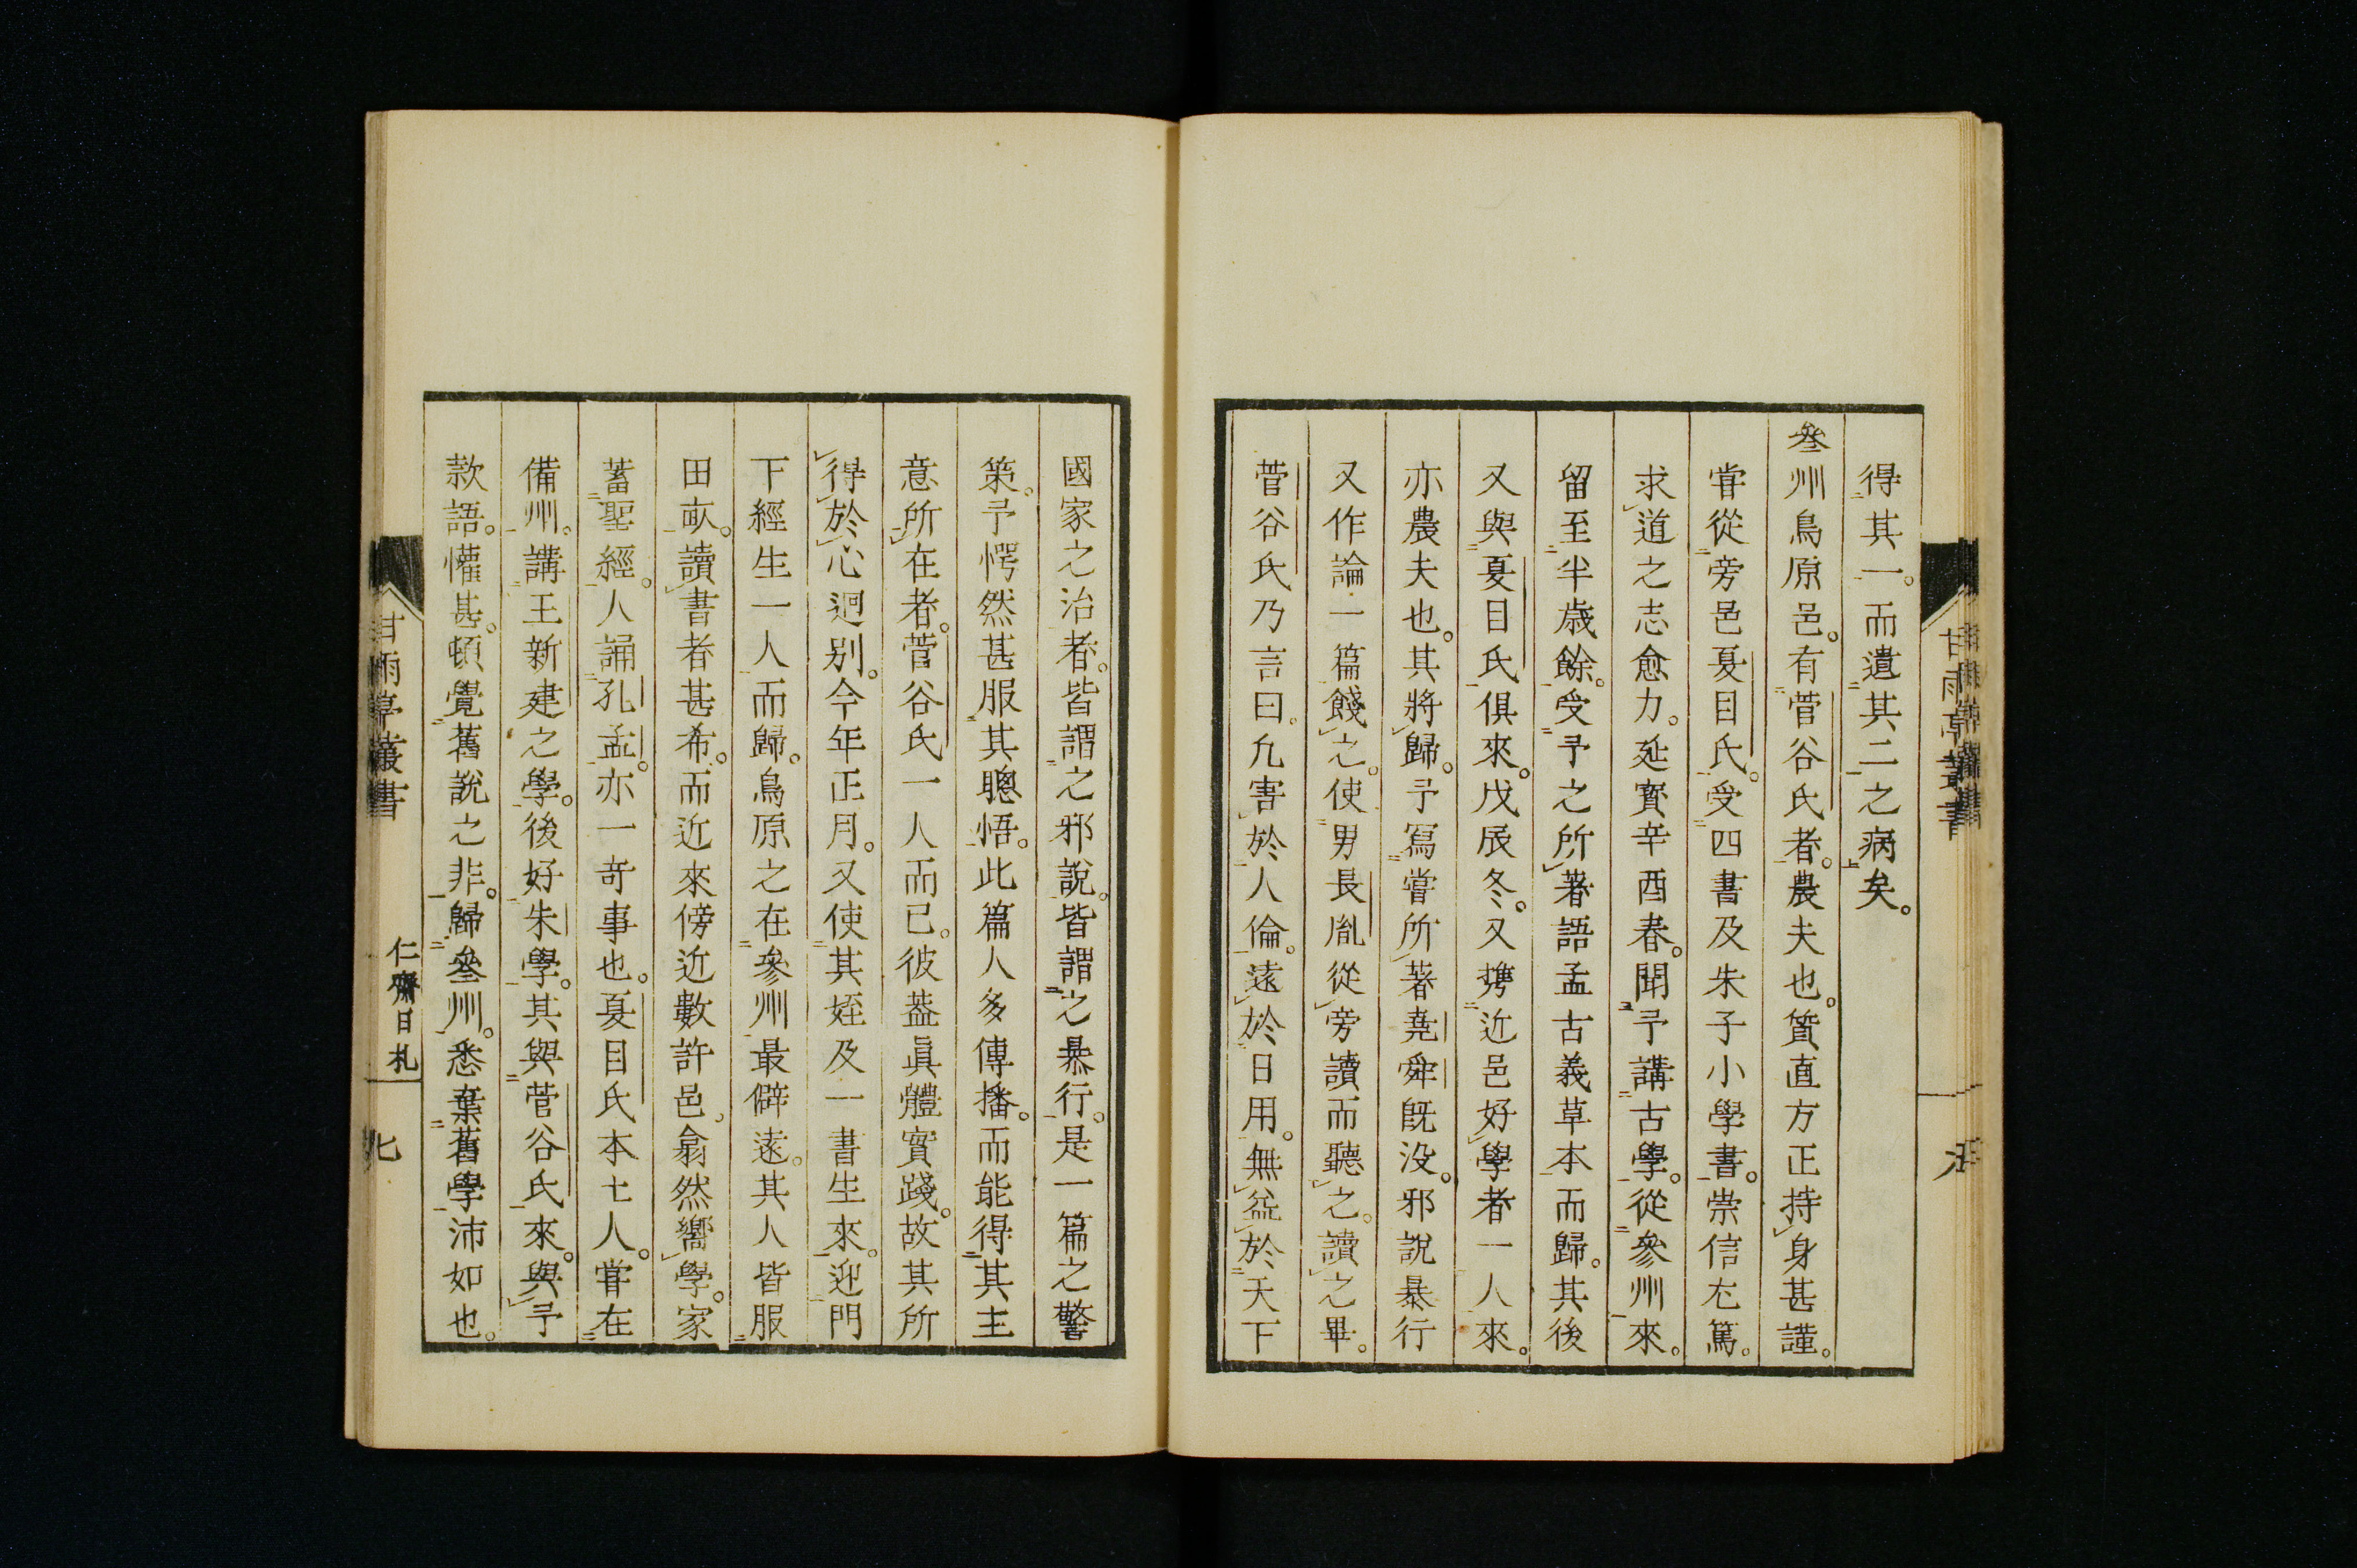 得其一。而遺其二之病矣。
叄州鳥原邑。有菅谷氏者。農夫也。質直方正持身甚謹。
甞從旁邑夏目氏。受四書及朱子小學書。崇信尤篤。
求道之志愈力。延寶辛酉春。聞予講古學。從參州來。
留至半歲餘。受予之所著語孟古義草本而歸。其後
又與夏目氏俱來。戊辰冬。又携近邑好學者一人來。
亦農夫也。其將歸。予寫嘗所著堯舜旣沒。邪說暴行
又作論一篇餞之。使男長胤從旁讀而聽之。讀之畢。
菅谷氏乃言曰。凢害於人倫。遠於日用。無益於天下
國家之治者。皆謂之邪說。皆謂之暴行。是一篇之警
策。予愕然甚服其聰悟。此篇人多傳播。而能得其主
意所在者。菅谷氏一人而已。彼葢眞體實踐。故其所
得於心迥別。今年正月。又使其姪及一書生來。迎門
下經生一人而歸。鳥原之在參州最僻遠。其人皆服
田畝。讀書者甚希。而近來傍近數許邑。翕然嚮學。家
蓄聖經。人誦孔孟。亦一奇事也。夏目氏本士人。甞在
備州。講王新建之學。後好朱學。其與菅谷氏來。與予
款語。懽甚。頓覺舊說之非。歸叄州。悉棄舊學沛如也。
甘雨亭叢書
仁齋日札
七